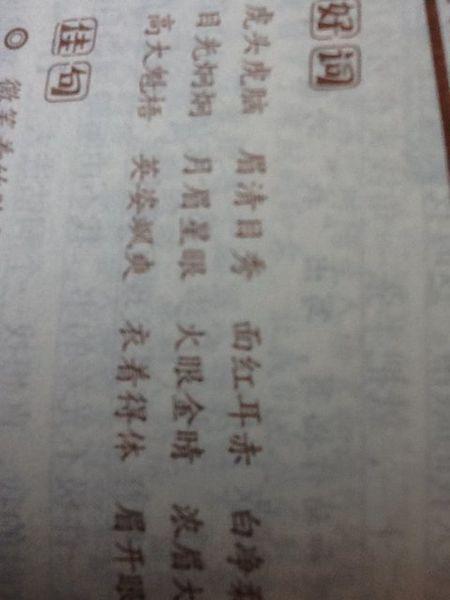 好词
虎头虎脑 眉清目秀 面红耳赤 白净
目光炯炯 月眉星眼 火眼金睛 浓眉大
高大魁梧 英姿飒爽 衣着得体 眉开眼
佳句
◎ 微笑着的